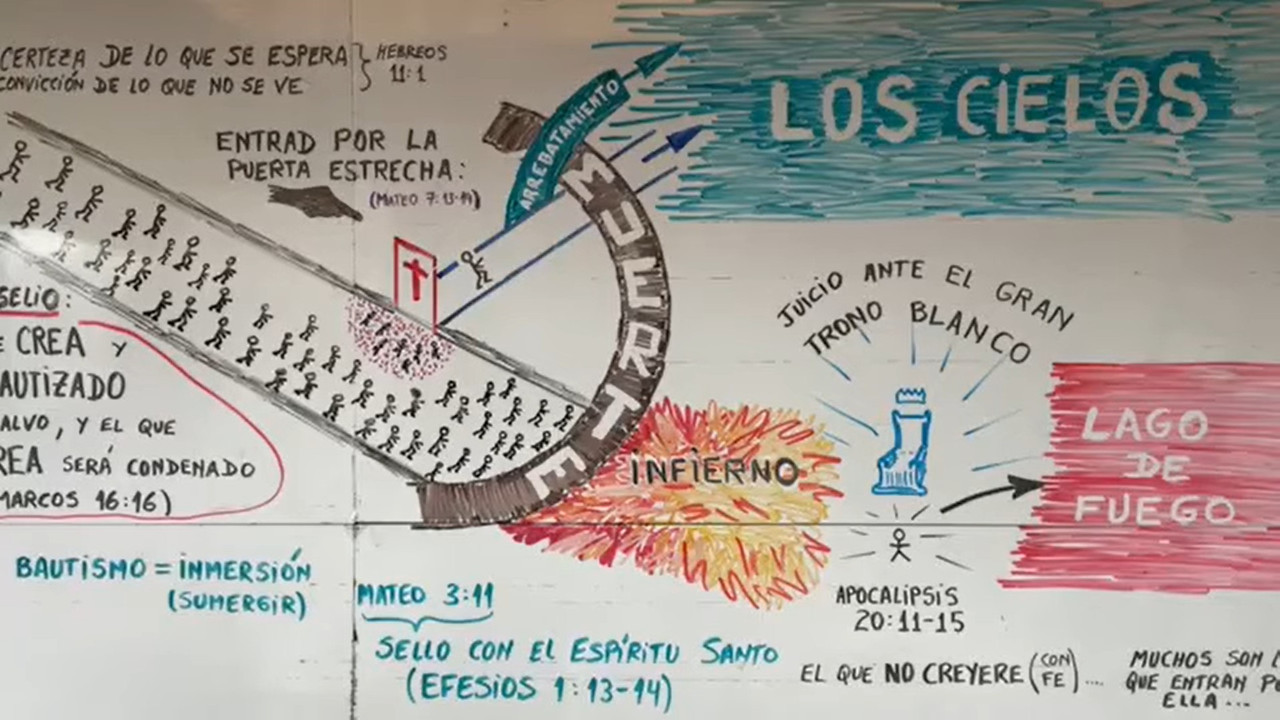 CERTEZA DE LO QUE SE ESPERA
CONVICCIÓN DE LO QUE NO SE VE
HEBREOS
11:1
ENTRAD POR LA
PUERTA ESTRECHA:
(MATEO 7:13-14)
ARREBATAMIENTO
LOS CIELOS
MUERTE
JUICIO ANTE EL GRAN
TRONO BLANCO
SELIO:
E CREA Y
AUTIZADO
ALVO, Y EL QUE
REA SERÁ CONDENADO
MARCOS 16:16)
INFIERNO
LAGO
DE
FUEGO
BAUTISMO = INMERSIÓN
(SUMERGIR)
MATEO 3:11
SELLO CON EL ESPÍRITU SANTO
(EFESIOS 1:13-14)
APOCALIPSIS
20:11-15
EL QUE NO CREYERE (CON FE)...
MUCHOS SON L
QUE ENTRAN PO
ELLA...